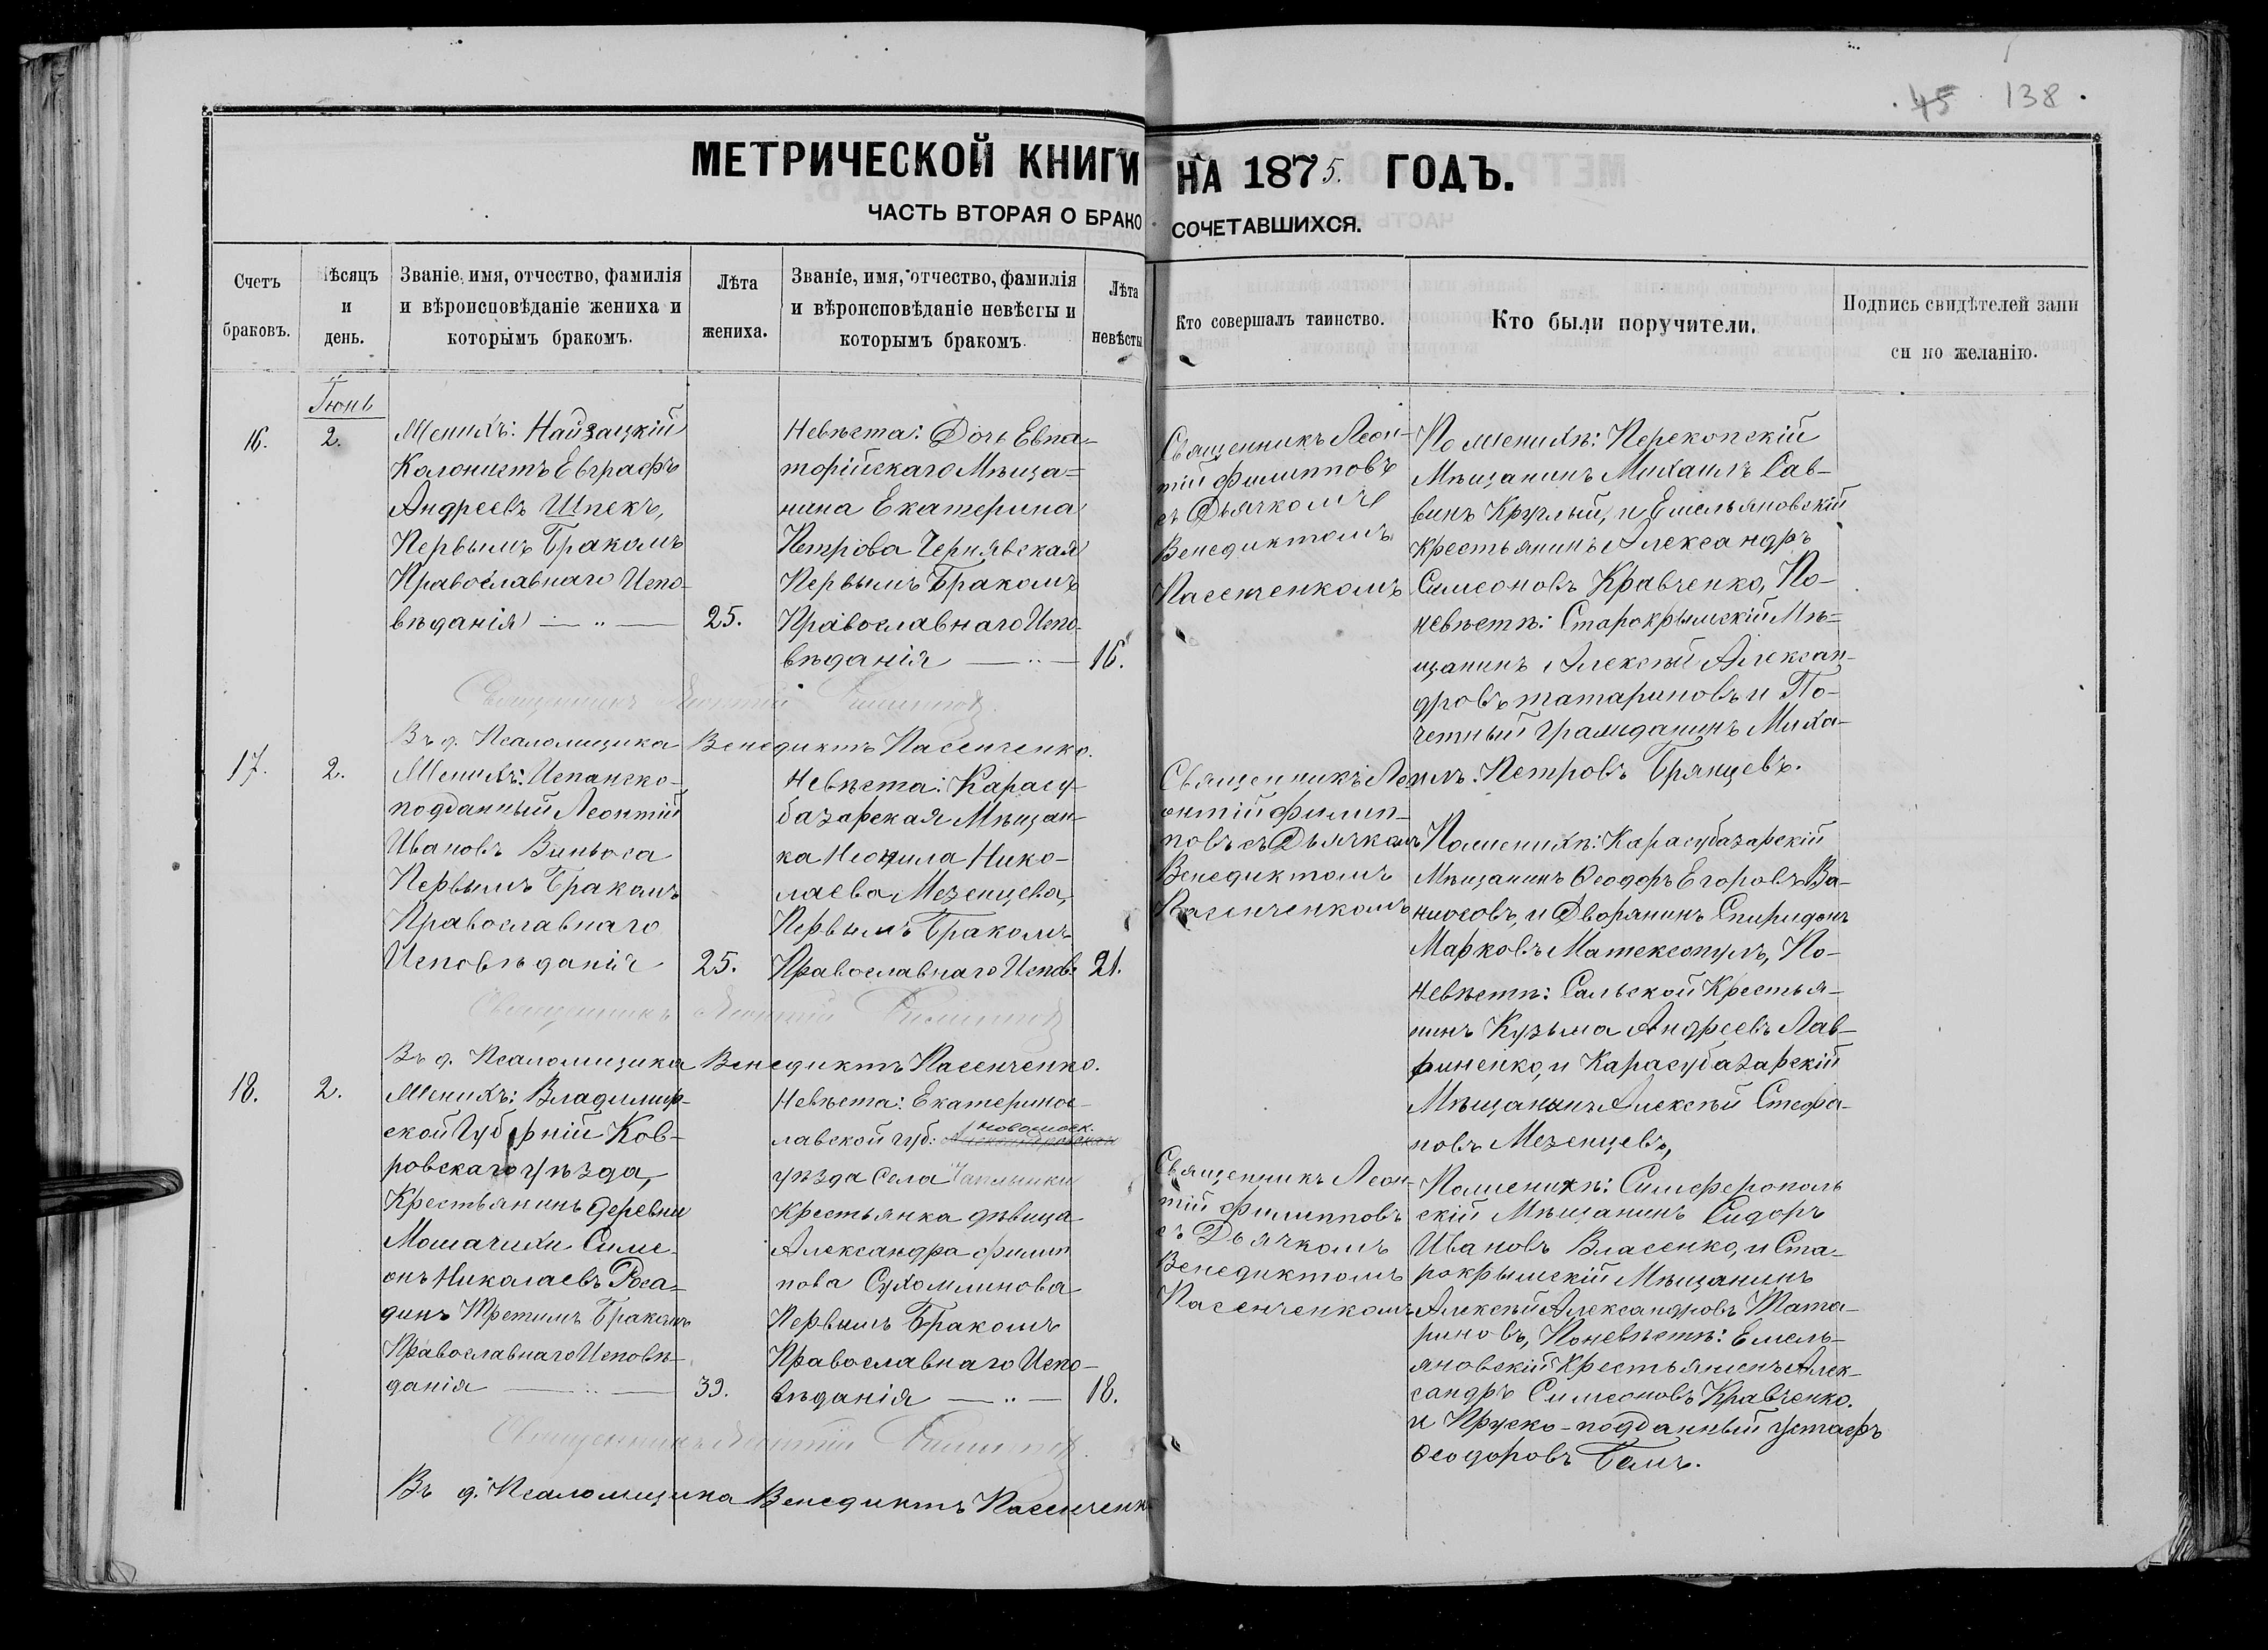 45 138.
МЕТРИЧЕСКОЙ КНИГИ НА 1875. ГОДЪ.
ЧАСТЬ ВТОРАЯ О БРАКОСОЧЕТАВШИХСЯ.
Счетъ
браковъ.
Мѣсяцъ
и
день.
Званіе, имя, отчество, фамилія
и вѣроисповѣданіе жениха и
которымъ бракомъ.
Лѣта
жениха.
Званіе, имя, отчество, фамилія
и вѣроисповѣданіе невѣсты и
которымъ бракомъ.
Лѣта
невѣсты
Кто совершалъ таинство.
Кто были поручители.
Подпись свидѣтелей запи
си по желанію.
Іюнь
16.
2.
Женихъ: Найзацкій
Колонистъ Евграфъ
Андреевъ Шпекъ,
Первымъ Бракомъ
Православнаго Испо-
вѣданія
25.
Невѣста: Дочь Евпа-
торійскаго Мѣща-
нина Екатерина
Петрова Чернявская
Первымъ Бракомъ
Православнаго Испо-
вѣданія
16.
Священникъ Леон-
тій Филипповъ
съ Дьячкомъ
Венедиктомъ
Пасенченкомъ
По женихѣ: Перекопскій
Мѣщанинъ Михаилъ Сав-
винъ Круглый, и Емельяновскій
Крестьянинъ Александръ
Симеоновъ Кравченко, По-
невѣстѣ: Старокрымскій Мѣ-
щанинъ Алексѣй Алексан-
дровъ татариновъ и По-
четный Гражданинъ Миха-
илъ Петровъ Брянцевъ.
Священникъ Леонтій Филипповъ
Въ д. Псаломщика Венедиктъ Пасенченко.
17.
2.
Женихъ: Испанско-
подданный Леонтій
Ивановъ Виньоса
Первымъ Бракомъ
Православнаго
Исповѣданія
25.
Невѣста: Карасу-
базарская Мѣщан-
ка Неонила Нико-
лаева Мезенцева,
Первымъ Бракомъ
Православнаго Испов.
21.
Священникъ Ле-
онтій Филип-
повъ съ Дьячкомъ
Венедиктомъ
Пасенченкомъ
По женихѣ: Карасубазарскій
Мѣщанинъ Ѳеодоръ Егоровъ
и Дворянинъ Спиридонъ
Марковъ Матексопулъ, По-
невѣстѣ: Сальской Крестья-
нинъ Кузьма Андреевъ Лав-
риненко, и Карасубазарскій
Мѣщанинъ Алексѣй Стефа-
новъ Мезенцевъ,
Священникъ Леонтій Филипповъ
Въ д. Псаломщика Венедиктъ Пасенченко.
18.
2.
Женихъ: Владимир-
ской Губерніи Ков-
ровскаго уѣзда,
Крестьянинъ деревни
Мошачихи Симе-
онъ Николаевъ Роса-
динъ Третимъ Бракомъ
Православнаго Исповѣ-
данія
39.
Невѣста: Екатеринос-
лавской губ: Новомоск.
уѣзда Села Чаплынки
Крестьянка дѣвица
Александра Филип
пова Сухомлинова
Первымъ Бракомъ
Православнаго Испо-
вѣданія
18.
Священникъ Леон-
тій Филипповъ
съ Дьячкомъ
Венедиктомъ
Пасенченкомъ
По женихѣ: Симферополь
скій Мѣщанинъ Сидоръ
Ивановъ Власенко, и Ста-
рокрымскій Мѣщанинъ
Алексѣй Александровъ Тата-
риновъ, По невѣстѣ: Емель-
яновскій Крестьянинъ Алек-
сандръ Симеоновъ Кравченко.
и Пруско-подданный Густафъ
Ѳеодоровъ Бемъ.
Священникъ Леонтій Филипповъ
Въ д. Псаломщика Венедиктъ Пасенченк